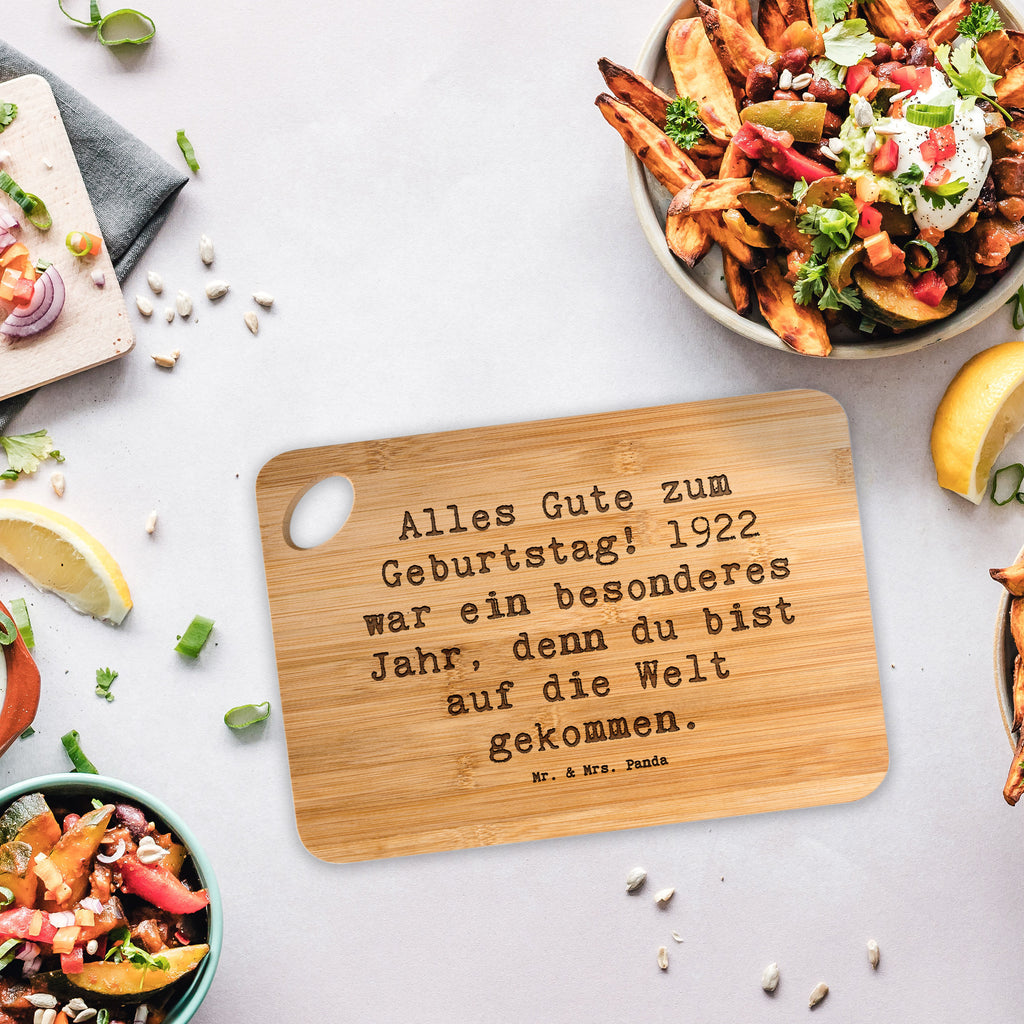 Alles Gute zum
Geburtstag! 1922
war ein besonderes
Jahr, denn du bist
auf die Welt
gekommen.
Mr. & Mrs. Panda